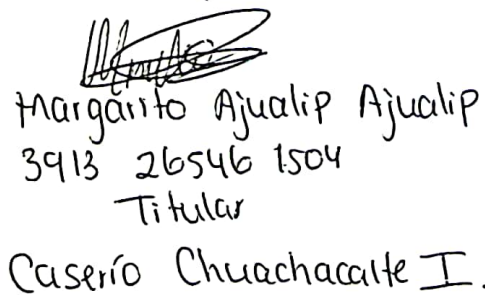 Margarito Ajualip Ajualip
3913 26546 1504
Titular
Caserío Chuachacalte I.